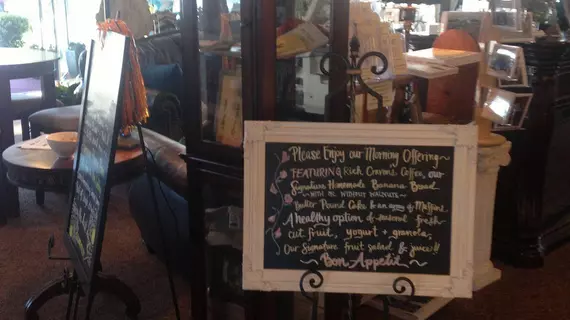 ~Please Enjoy our Morning Offering~
FEATURING Rich Cravens Coffee, our
Signature Homemade Banana Bread
~WITH OR WITHOUT WALNUTS~
Butter Pound Cake & an array of Muffins.
A healthy option of seasonal fresh-
cut fruit, yogurt + granola,
Our Signature fruit salad & juice!!
~Bon Appetit~